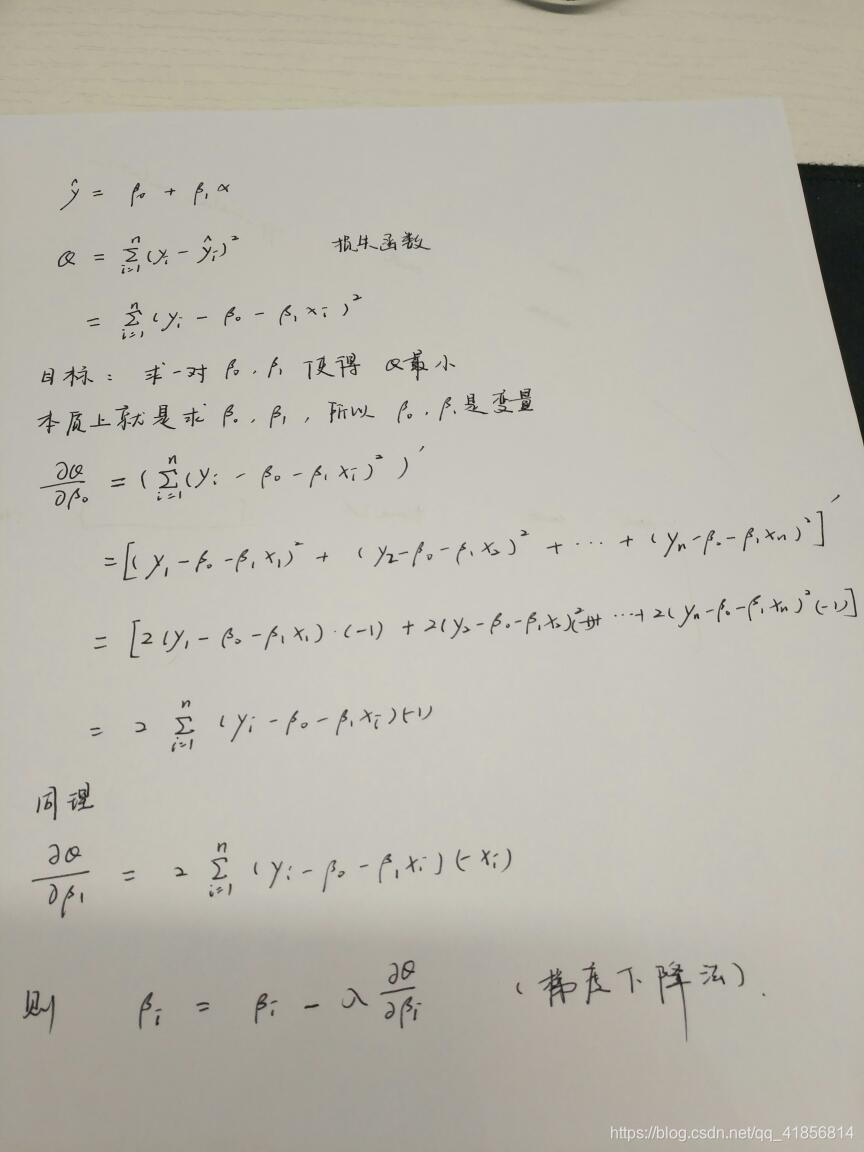 ŷ = β₀ + β₁x
Q = Σⁿᵢ₌₁ (yᵢ - ŷᵢ)² 损失函数
= Σⁿᵢ₌₁ (yᵢ - β₀ - β₁xᵢ)²
目标: 求一对 β₀, β₁ 使得 Q最小
本质上就是求 β₀, β₁, 所以 β₀, β₁是变量
∂Q/∂β₀ = (Σⁿᵢ₌₁ (yᵢ - β₀ - β₁xᵢ)²)′
= [(y₁-β₀-β₁x₁)² + (y₂-β₀-β₁x₂)² + ··· + (yₙ-β₀-β₁xₙ)²]′
= [2(y₁-β₀-β₁x₁)·(-1) + 2(y₂-β₀-β₁x₂)²(-1)+ ···+2(yₙ-β₀-β₁xₙ)²(-1)]
= 2 Σⁿᵢ₌₁ (yᵢ-β₀-β₁xᵢ)(-1)
同理
∂Q/∂β₁ = 2 Σⁿᵢ₌₁ (yᵢ-β₀-β₁xᵢ)(-xᵢ)
则 βᵢ = βᵢ - λ ∂Q/∂βᵢ (梯度下降法).
https://blog.csdn.net/qq_41856814